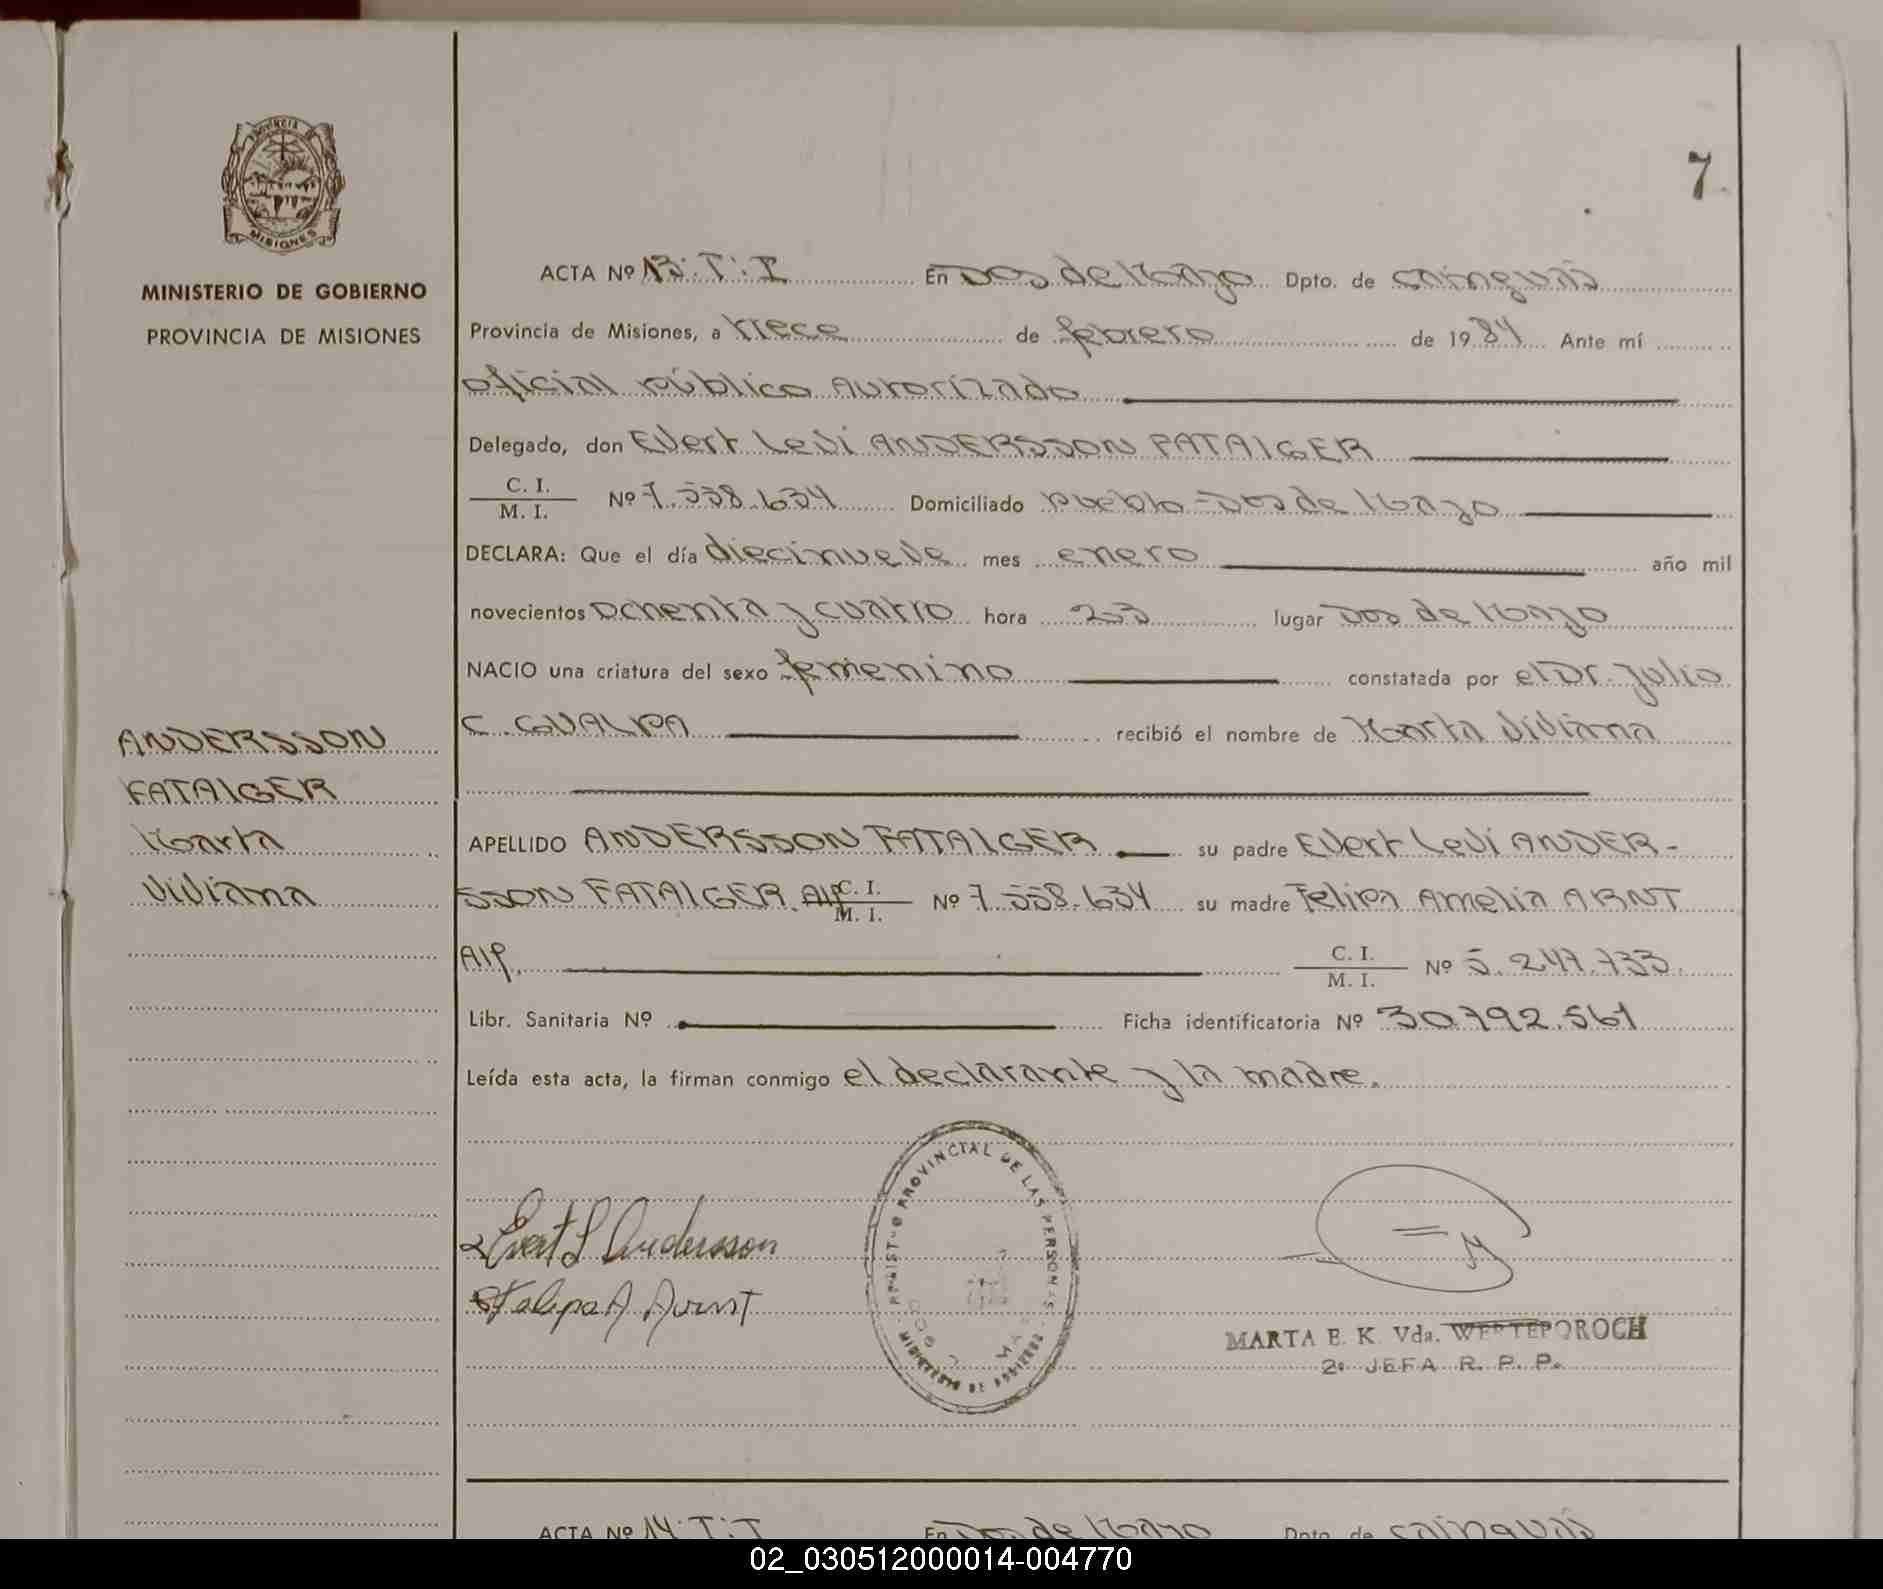 7
PROVINCIA DE
MISIONES
MINISTERIO DE GOBIERNO
PROVINCIA DE MISIONES
ACTA Nº 13. T: I En Dos de Mayo Dpto. de Cainguás
Provincia de Misiones, a trece de febrero de 1984 Ante mí
oficial público autorizado
Delegado, don Evert Levi ANDERSSON FATAIGER
C. I.
M. I. Nº 7.558.634 Domiciliado pueblo - Dos de Mayo
DECLARA: Que el día diecinueve mes enero año mil
novecientos ochenta y cuatro hora 23 lugar Dos de Mayo
NACIO una criatura del sexo femenino constatada por el Dr. Julio
C. GUALPA recibió el nombre de Marta Viviana
ANDERSSON
FATAIGER
Marta
Viviana
APELLIDO ANDERSSON FATAIGER su padre Evert Levi ANDER-
SSON FATAIGER. C. I.
M. I. Nº 7.558.634 su madre Felipa Amelia ARNT
C. I.
M. I. Nº 5.247.733.
Libr. Sanitaria Nº Ficha identificatoria Nº 30.792.561
Leída esta acta, la firman conmigo el declarante y la madre.
Evert L Andersson
Felipa A Arnt
PROVINCIAL DE LAS PERSONAS
MINISTERIO DE GOBIERNO
MARTA E. K. Vda. WERTEPOROCH
2ª JEFA R. P. P.
ACTA Nº 14. T: I En Dos de Mayo Dpto. de Cainguás
02_030512000014-004770